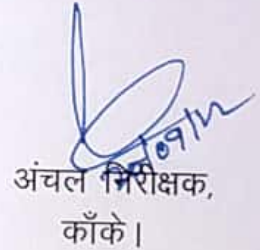 अंचल निरीक्षक,
काँके।